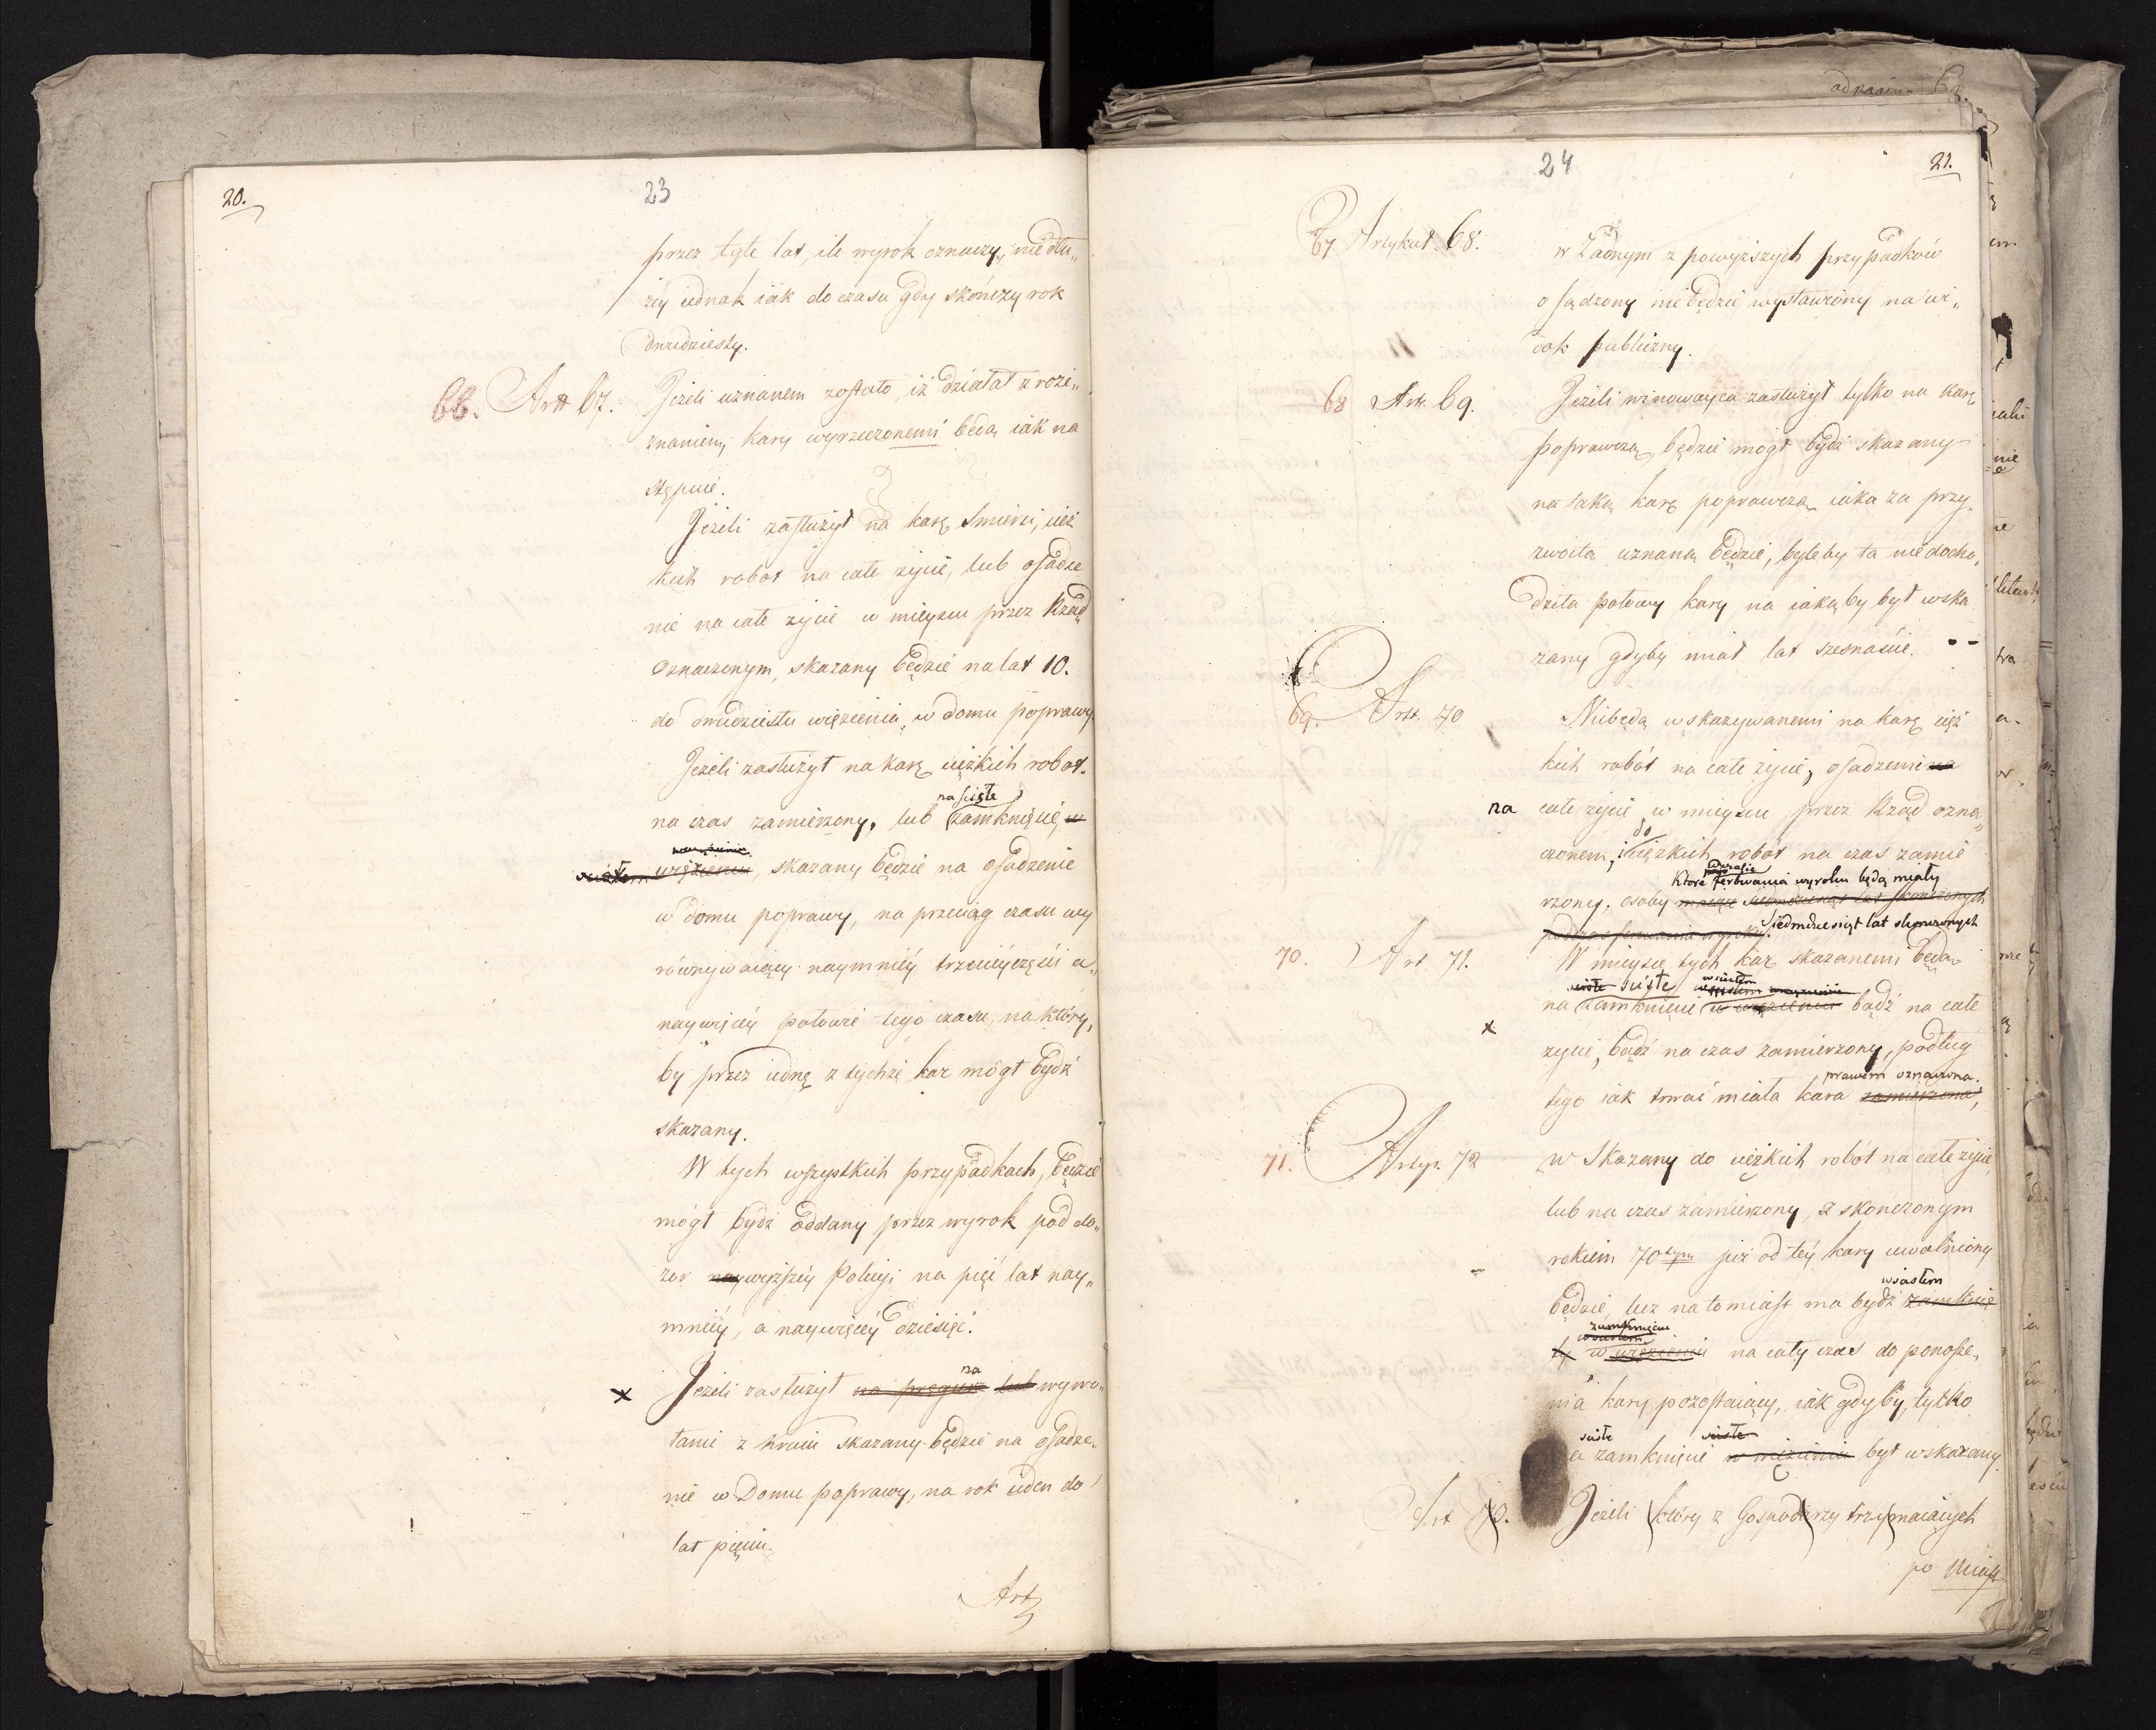 20.
23
przez tyle lat, ile wyrok oznaczy, nie dłu„
żéy iednak iak do czasu gdy skończy rok
dwudziesty.
66. Artt 67. Jeżeli uznanem zostało, iż działał z roze„
znaniem, kary wyrzeczonemi będą iak na
stępuie.
Jeżeli zasłużył na karę śmierci, cięż
kich robot na całe życie, lub osadze
nie na całe życie w mieyscu przez Rząd
oznaczonym, skazany będzie na lat 10.
do dwudziestu więzienia, w domu poprawy.
Jeżeli zasłużył na karę ciężkich robot.
na ściśłe
na czas zamierzony, lub zamknięcie, w
więzieniu, skazany będzie na osadzenie
w domu poprawy, na przeciąg czasu wy
równywaiący naymniéy trzeciéy części a„
naywięcéy połowie tego czasu, na który,
by przez iednę z tychże kar mógł bydź
skazany.
W tych wszystkich przypadkach, będzie
mógł bydź oddany przez wyrok pod do„
zor naywyższéy Policyi na pięć lat nay„
mniéy, a naywięcéy dziesięć.
na
x Jeżeli zasłużył na pręgierz lub wywo„
łanie z kraiu skazany będzie na osadze„
nie w Domu poprawy, na rok ieden do
lat pięciu.
Art
24
21.
67 Artykuł 68. w Żadnym z powyższych przypadków
osądzony nie będzie wystawiony na wi„
dok publiczny.
68 Art. 69. Jeżeli winowayca zasłużył tylko na karę
poprawczą, będzie mógł bydź skazany
na taką karę poprawczą iaka za przy„
zwoita uznaną będzie, byleby ta nie docho„
dziła połowy kary na iaką by był wska
zany gdyby miał lat szesnaście.
69. Artt. 70 Nie będą wskazywanemi na karę cięż
kich robót na całe życie, osadzenie na
na całe życie w mieyscu przez Rząd ozna„
do
czonem, i ciężkich robót na czas zamie
w czasie
które ferowania wyroku będą miały
rzony, osoby maiące siedmdziesiąt lat skończonych
siedmdziesiąt lat skończonych
podczas ferowania wyroku.
70. Art 71. W mieysce tych kar skazanemi będą
ściśłe ściśłe
na zamknięcie w więzieniu bądź na całe
x
życie, bądź na czas zamierzony, podług
prawem oznaczona.
tego iak trwać miała kara zamierzona,
71. Artyk. 72 w Skazany do ciężkich robót na całe życie,
lub na czas zamierzony, z skończonym
rokiem 70tym już od téy kary uwolniony
w ścisłem
będzie, lecz natomiast ma bydź zamknię
zamknięciu
ty w więzieniu na cały czas do ponosze„
nia kary pozostaiący, iak gdyby tylko
ściśłe ściśłe
a zamknięcie w więzieniu był wskazany.
Art 73. Jeżeli który z Gospodarzy trzymaiących
po Miast